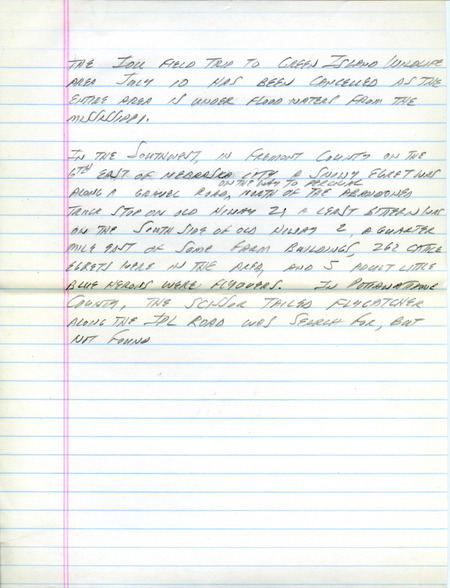 THE IOU FIELD TRIP TO GREEN ISLAND WILDLIFE
AREA JULY 10 HAS BEEN CANCELLED AS THE
ENTIRE AREA IS UNDER FLOODWATERS FROM THE
MISSISSIPPI.
IN THE SOUTHWEST, IN FREMONT COUNTY ON THE
6TH EAST OF NEBRASKA CITY A SNOWY EGRET WAS
ON THE WAY TO PERCIVAL
ALONG A GRAVEL ROAD, NORTH OF THE ABANDONED
TRUCK STOP ON OLD HIWAY 2; A LEAST BITTERN WAS
ON THE SOUTH SIDE OF OLD HIWAY 2, A QUARTER
MILE EAST OF SOME FARM BUILDINGS, 262 CATTLE
EGRETS WERE IN THE AREA, AND 5 ADULT LITTLE
BLUE HERONS WERE FLYOVERS. IN POTTAWATTAMIE
COUNTY, THE SCISSOR TAILED FLYCATCHER
ALONG THE IPL ROAD WAS SEARCH FOR, BUT
NOT FOUND